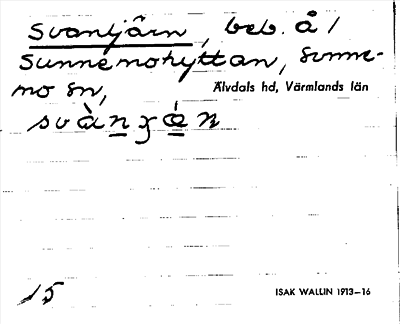 Svantjärn, beb. å 1
Sunnemohyttan, Sunne-
mo sn,
Älvdals hd, Värmlands län
15
ISAK WALLIN 1913–16